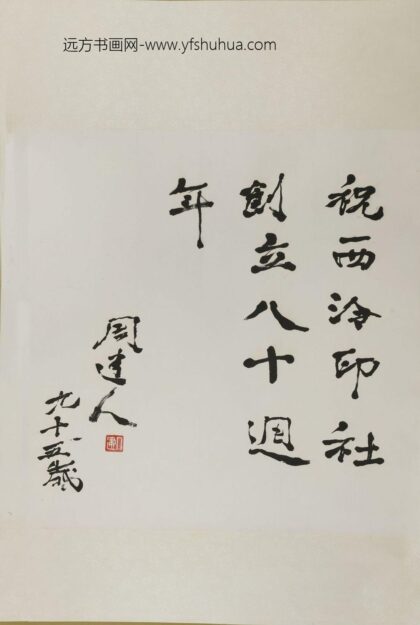 远方书画网-www.yfshuhua.com
祝西泠印社
創立八十週
年
周建人
九十五歲